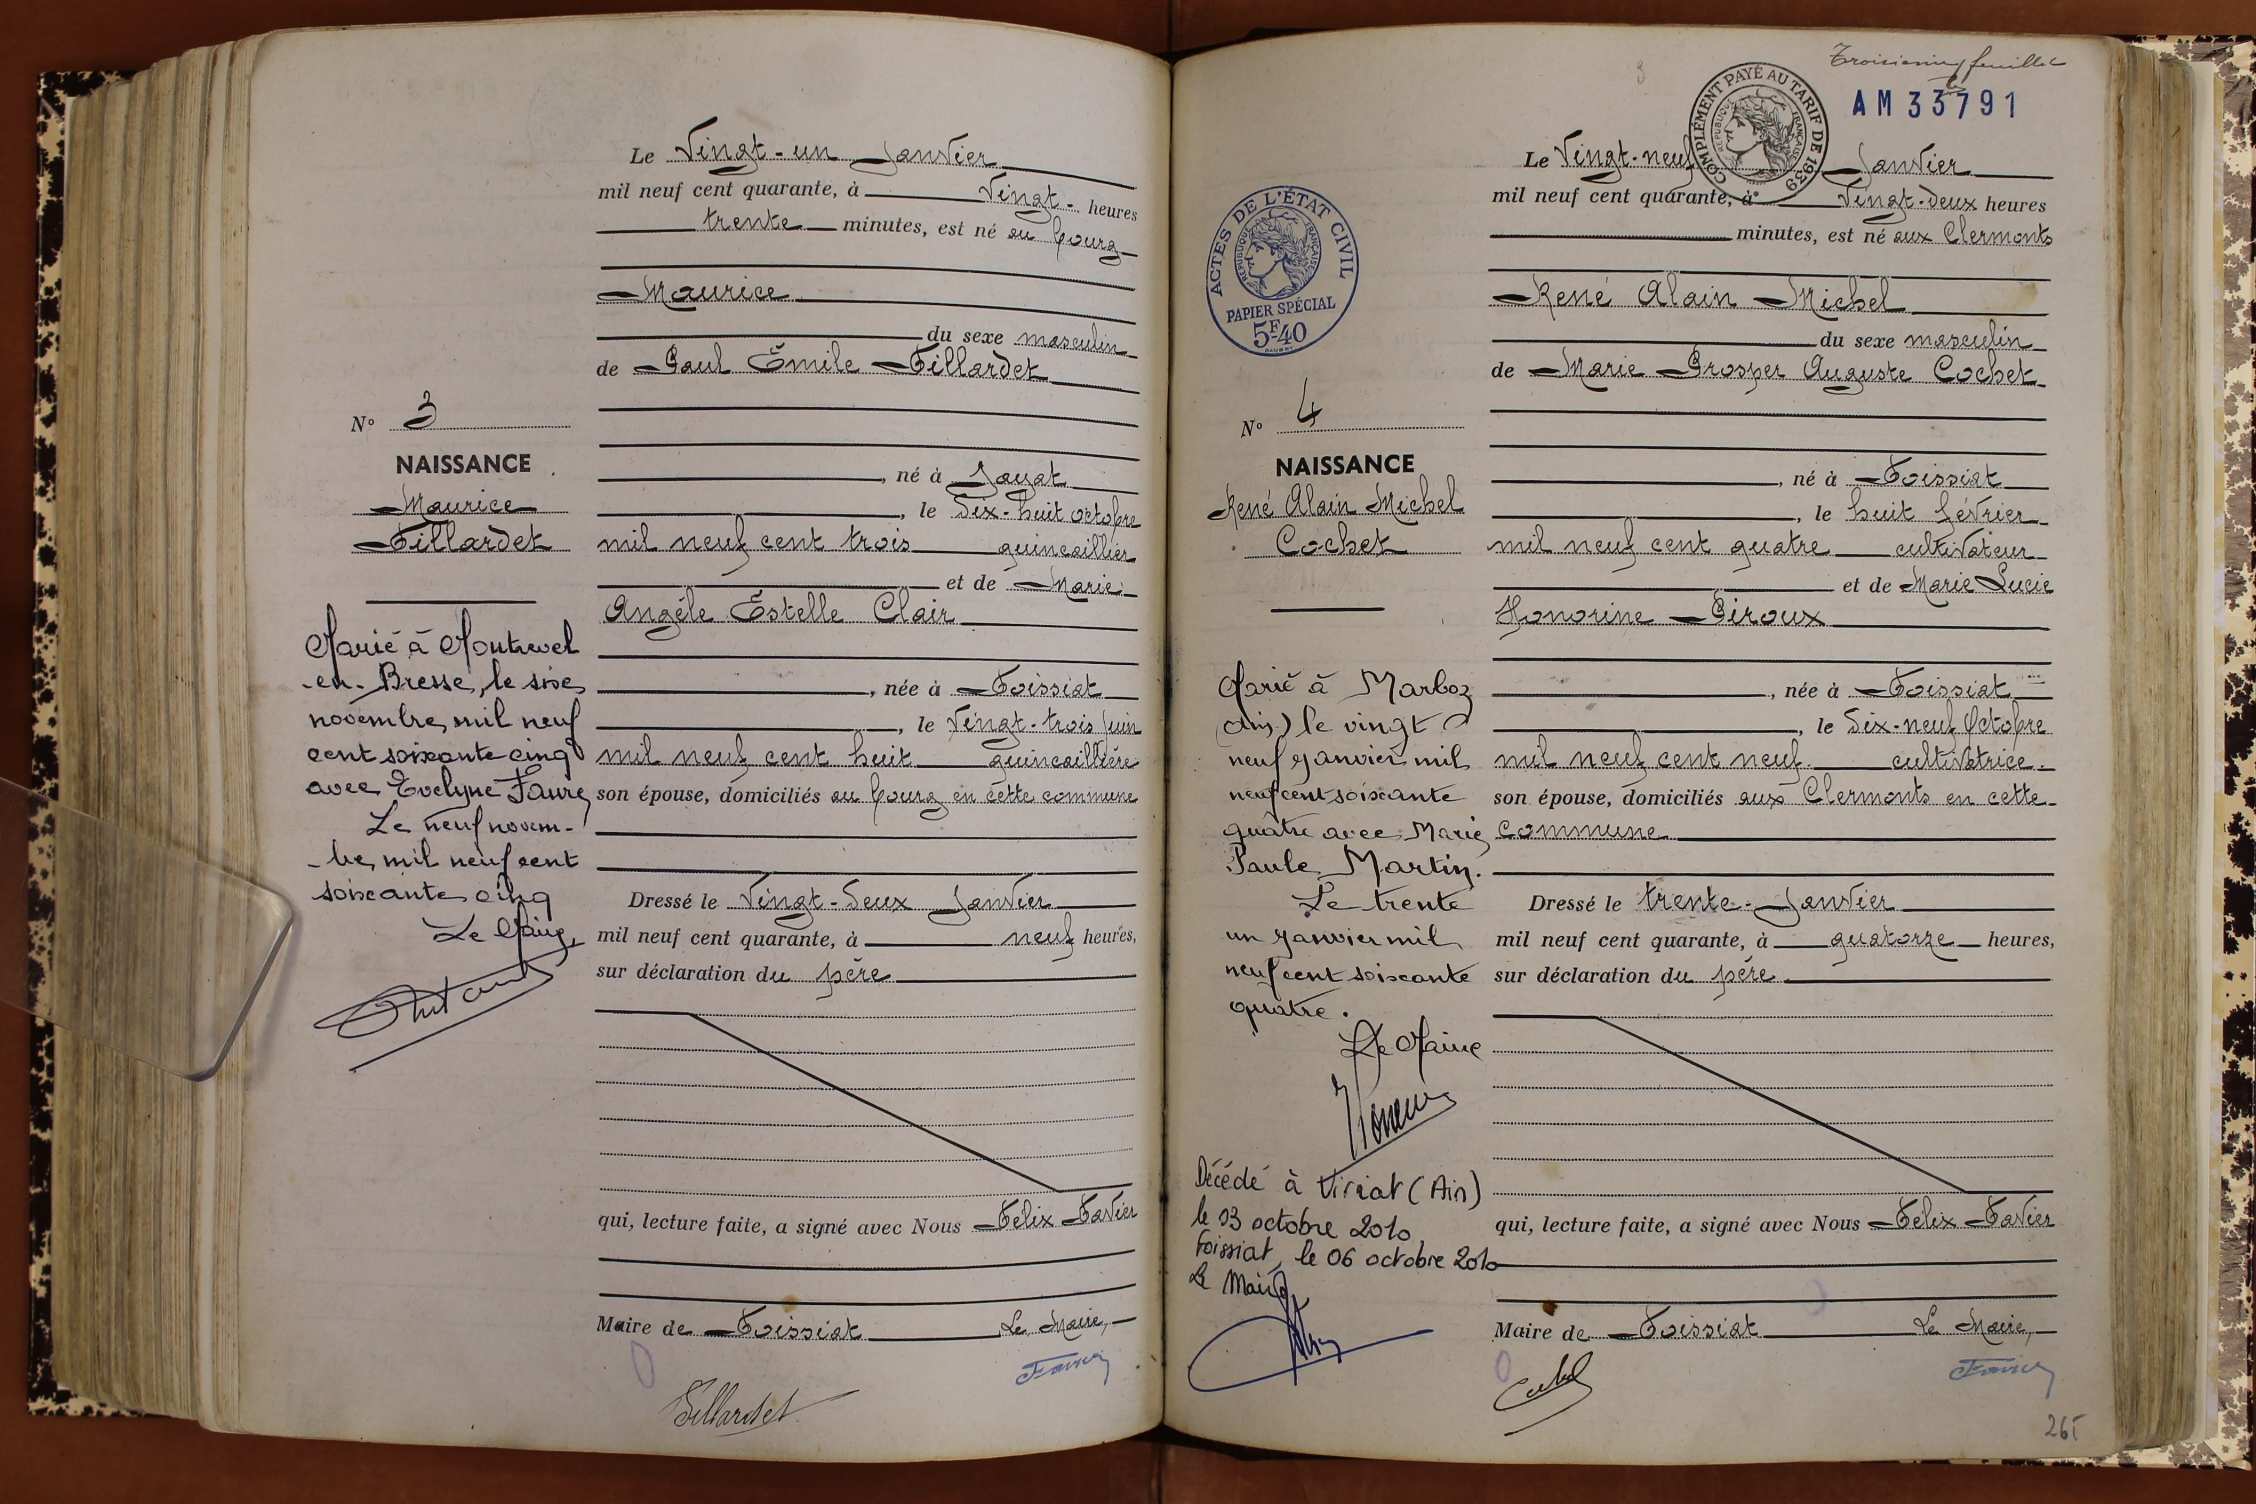 Le Vingt-un Janvier
mil neuf cent quarante, à Vingt- heures
trente minutes, est né au bourg
Maurice
du sexe masculin
de Paul Émile Fillardet
né à Jayat
, le Dix-huit octobre
mil neuf cent trois quincaillier
et de Marie
Angèle Estelle Clair
, née à Foissiat
, le Vingt-trois Juin
mil neuf cent huit quincaillière
son épouse, domiciliés au bourg en cette commune
Dressé le Vingt-Deux Janvier
mil neuf cent quarante, à neuf heures,
sur déclaration du père
qui, lecture faite, a signé avec Nous Félix Favier
Maire de Foissiat Le Maire,
Favier
Fillardet
N° 3
NAISSANCE
Maurice
Fillardet
Marié à Montrevel
-en-Bresse, le six
novembre mil neuf
cent soixante cinq
avec Evelyne Faure
Le neuf novem-
bre mil neuf cent
soixante cinq
Le Maire,
Troisième feuillet
AM 33791
COMPLÉMENT PAYÉ AU TARIF DE 1939
RÉPUBLIQUE FRANÇAISE
ACTES DE L'ÉTAT CIVIL
RÉPUBLIQUE FRANÇAISE
PAPIER SPÉCIAL
5F40
Le Vingt-neuf Janvier
mil neuf cent quarante, à Vingt-deux heures
minutes, est né aux Clermonts
René Alain Michel
du sexe masculin
de Marie Prosper Auguste Cochet
, né à Foissiat
, le huit février
mil neuf cent quatre cultivateur
et de Marie Lucie
Honorine Piroux
, née à Foissiat
, le Dix-neuf Octobre
mil neuf cent neuf. cultivatrice.
son épouse, domiciliés aux Clermonts en cette
commune
Dressé le trente Janvier
mil neuf cent quarante, à quatorze heures,
sur déclaration du père
qui, lecture faite, a signé avec Nous Félix Favier
Maire de Foissiat Le Maire,
Favier
N° 4
NAISSANCE
René Alain Michel
Cochet
Marié à Marboz
(Ain) le vingt
neuf janvier mil
neuf cent soixante
quatre avec Marie
Paule Martin.
Le trente
un janvier mil
neuf cent soixante
quatre.
Le Maire
Décédé à Viriat (Ain)
le 03 octobre 2010
Foissiat, le 06 octobre 2010
Le Maire
265